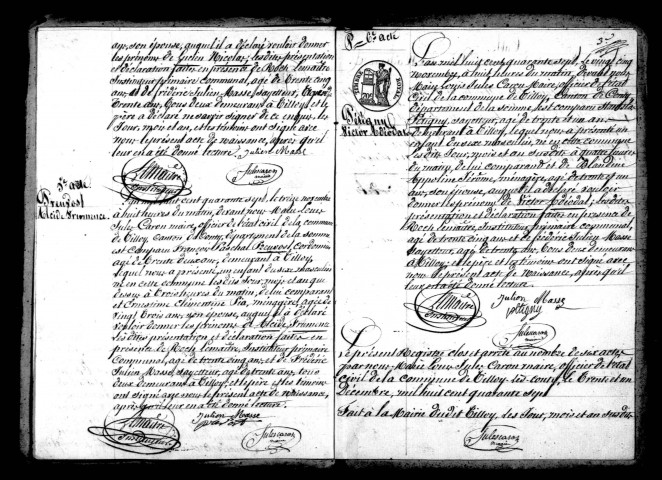 an, son épouse, auquel il a déclaré vouloir donner
les prénoms de Lucien Nicolas; les dites présentation
et déclaration faites en présence de Roch Lemaitre
Instituteur primaire Communal, âgé de trente cinq
ans, et de Frédéric Julien Masse, sayetteur, âgé de
trente ans, tous deux demeurans à Tilloy, et le
père a déclaré ne savoir signer de ce enquis, les
Jour, mois et an, et les témoins ont signé avec
nous le présent acte de naissance, après qu'il
leur en a été donné lecture.
Julien Masse
Lemaitre
Instituteur
Jules Caron
maire
5e acte
Prevost
Alcide Framence
L'an mil huit cent quarante sept, le treize novembre
à huit heures du matin, devant nous Maire Louis
Jules Caron maire, officier de l'état civil de la commune
de Tilloy, Canton de Conty, département de la Somme
est comparu François Paschal Prevost, cordonnier
âgé de trente deux ans, demeurant à Tilloy,
lequel nous a présenté un enfant du sexe masculin
né en cette commune les dits jour, mois et an que
dessus à trois heures du matin, de lui comparant
et Ernestine Clémentine, ménagère, âgée de
vingt trois ans son épouse, auquel il a déclaré
vouloir donner les prénoms d'Alcide Framence
les dites présentation et déclaration faites en
présence de Roch Lemaitre, Instituteur primaire
Communal, âgé de trente cinq ans, et de Frédéric
Julien Masse, Sayetteur, âgé de trente ans, tous
deux demeurans à Tilloy, et le père et les témoins
ont signé avec nous le présent acte de naissance,
après que lecture leur en a été donné.
Lemaitre
Instituteur
Julien Masse
Prevost
Jules Caron
maire
6e acte
Petigny
Victor Théodas
L'an mil huit cent quarante sept, le vingt cinq
novembre, à huit heures du matin, devant nous
Maire Louis Jules Caron Maire, officier de l'état
Civil de la commune de Tilloy, Canton de Conty
Département de la Somme, est comparu
Petigny, sayetteur, âgé de trente un ans
demeurant à Tilloy, lequel nous a présenté un
enfant du sexe masculin, né en cette commune
les dits jour, mois et an susdits à quatre heures
du matin, de lui comparant et de Blandine
Appoline Jérôme, ménagère, âgée de trente
ans, son épouse, auquel il a déclaré vouloir
donner les prénoms de Victor Théodas; les dites
présentation et déclaration faites en présence de
Roch Lemaitre, Instituteur primaire communal,
âgé de trente cinq ans et de Frédéric Julien Masse
Sayetteur, âgé de trente ans, tous deux demeurans
à Tilloy; et le père et les témoins ont signé avec
nous le présent acte de Naissance, après qu'il
leur en a été donné lecture.
Lemaitre
Instituteur
Julien Masse
petigny
Jules Caron
maire
Le présent Registre clos et arrêté au nombre de six actes
par nous Maire Louis Jules Caron maire, officier de l'état
civil de la commune de Tilloy-les-Conty, le trente et un
Décembre, mil huit cent quarante sept
Fait à la Mairie dudit Tilloy, les Jour, mois et an susdits
Jules Caron
maire